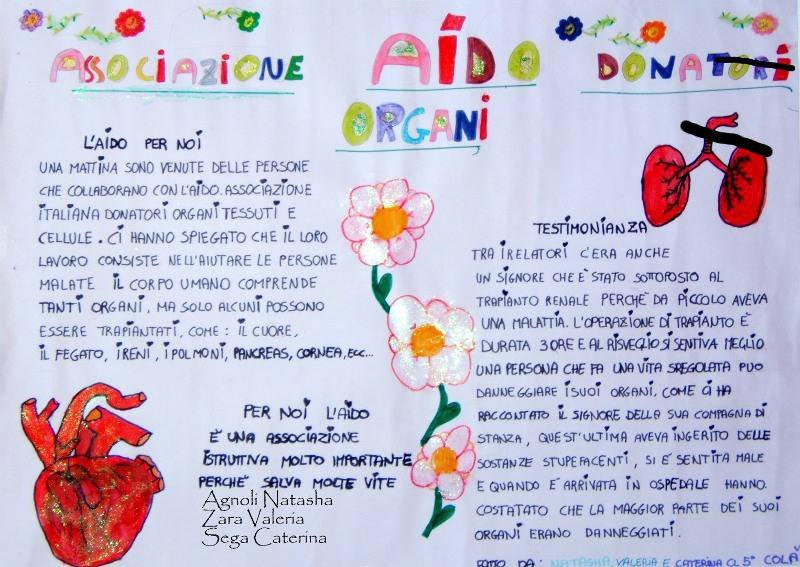 ASSOCIAZIONE AIDO DONATORI
ORGANI
L'AIDO PER NOI
UNA MATTINA SONO VENUTE DELLE PERSONE
CHE COLLABORANO CON L'AIDO. ASSOCIAZIONE
ITALIANA DONATORI ORGANI TESSUTI E
CELLULE. CI HANNO SPIEGATO CHE IL LORO
LAVORO CONSISTE NELL'AIUTARE LE PERSONE
MALATE IL CORPO UMANO COMPRENDE
TANTI ORGANI, MA SOLO ALCUNI POSSONO
ESSERE TRAPIANTATI, COME: IL CUORE,
IL FEGATO, I RENI, I POLMONI, PANCREAS, CORNEA, ECC...
PER NOI L'AIDO
È UNA ASSOCIAZIONE
ISTRUTTIVA MOLTO IMPORTANTE
PERCHÈ SALVA MOLTE VITE
Agnoli Natasha
Zara Valeria
Sega Caterina
TESTIMONIANZA
TRA I RELATORI C'ERA ANCHE
UN SIGNORE CHE È STATO SOTTOPOSTO AL
TRAPIANTO RENALE PERCHÈ DA PICCOLO AVEVA
UNA MALATTIA. L'OPERAZIONE DI TRAPIANTO È
DURATA 3 ORE E AL RISVEGLIO SI SENTIVA MEGLIO
UNA PERSONA CHE FA UNA VITA SREGOLATA PUO
DANNEGGIARE I SUOI ORGANI, COME CI HA
RACCONTATO IL SIGNORE DELLA SUA COMPAGNA DI
STANZA, QUEST'ULTIMA AVEVA INGERITO DELLE
SOSTANZE STUPEFACENTI, SI È SENTITA MALE
E QUANDO È ARRIVATA IN OSPEDALE HANNO
COSTATATO CHE LA MAGGIOR PARTE DEI SUOI
ORGANI ERANO DANNEGGIATI.
FATTO DA: NATASHA, VALERIA E CATERINA CL 5° COLÀ